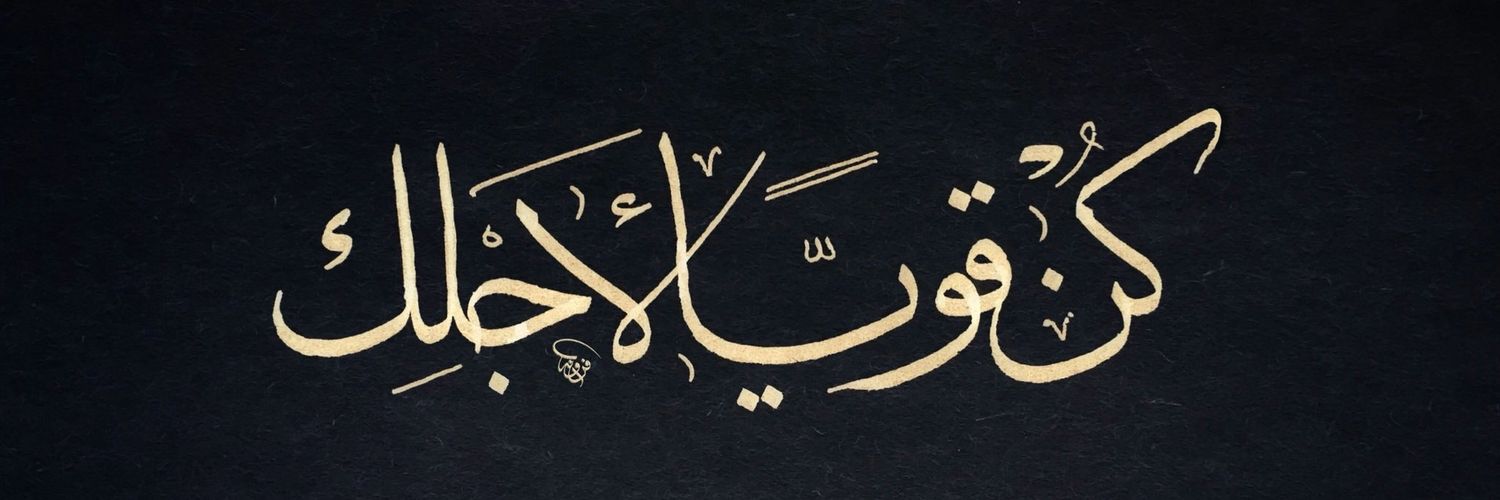 كُنْ قويًّا لأجْلِك